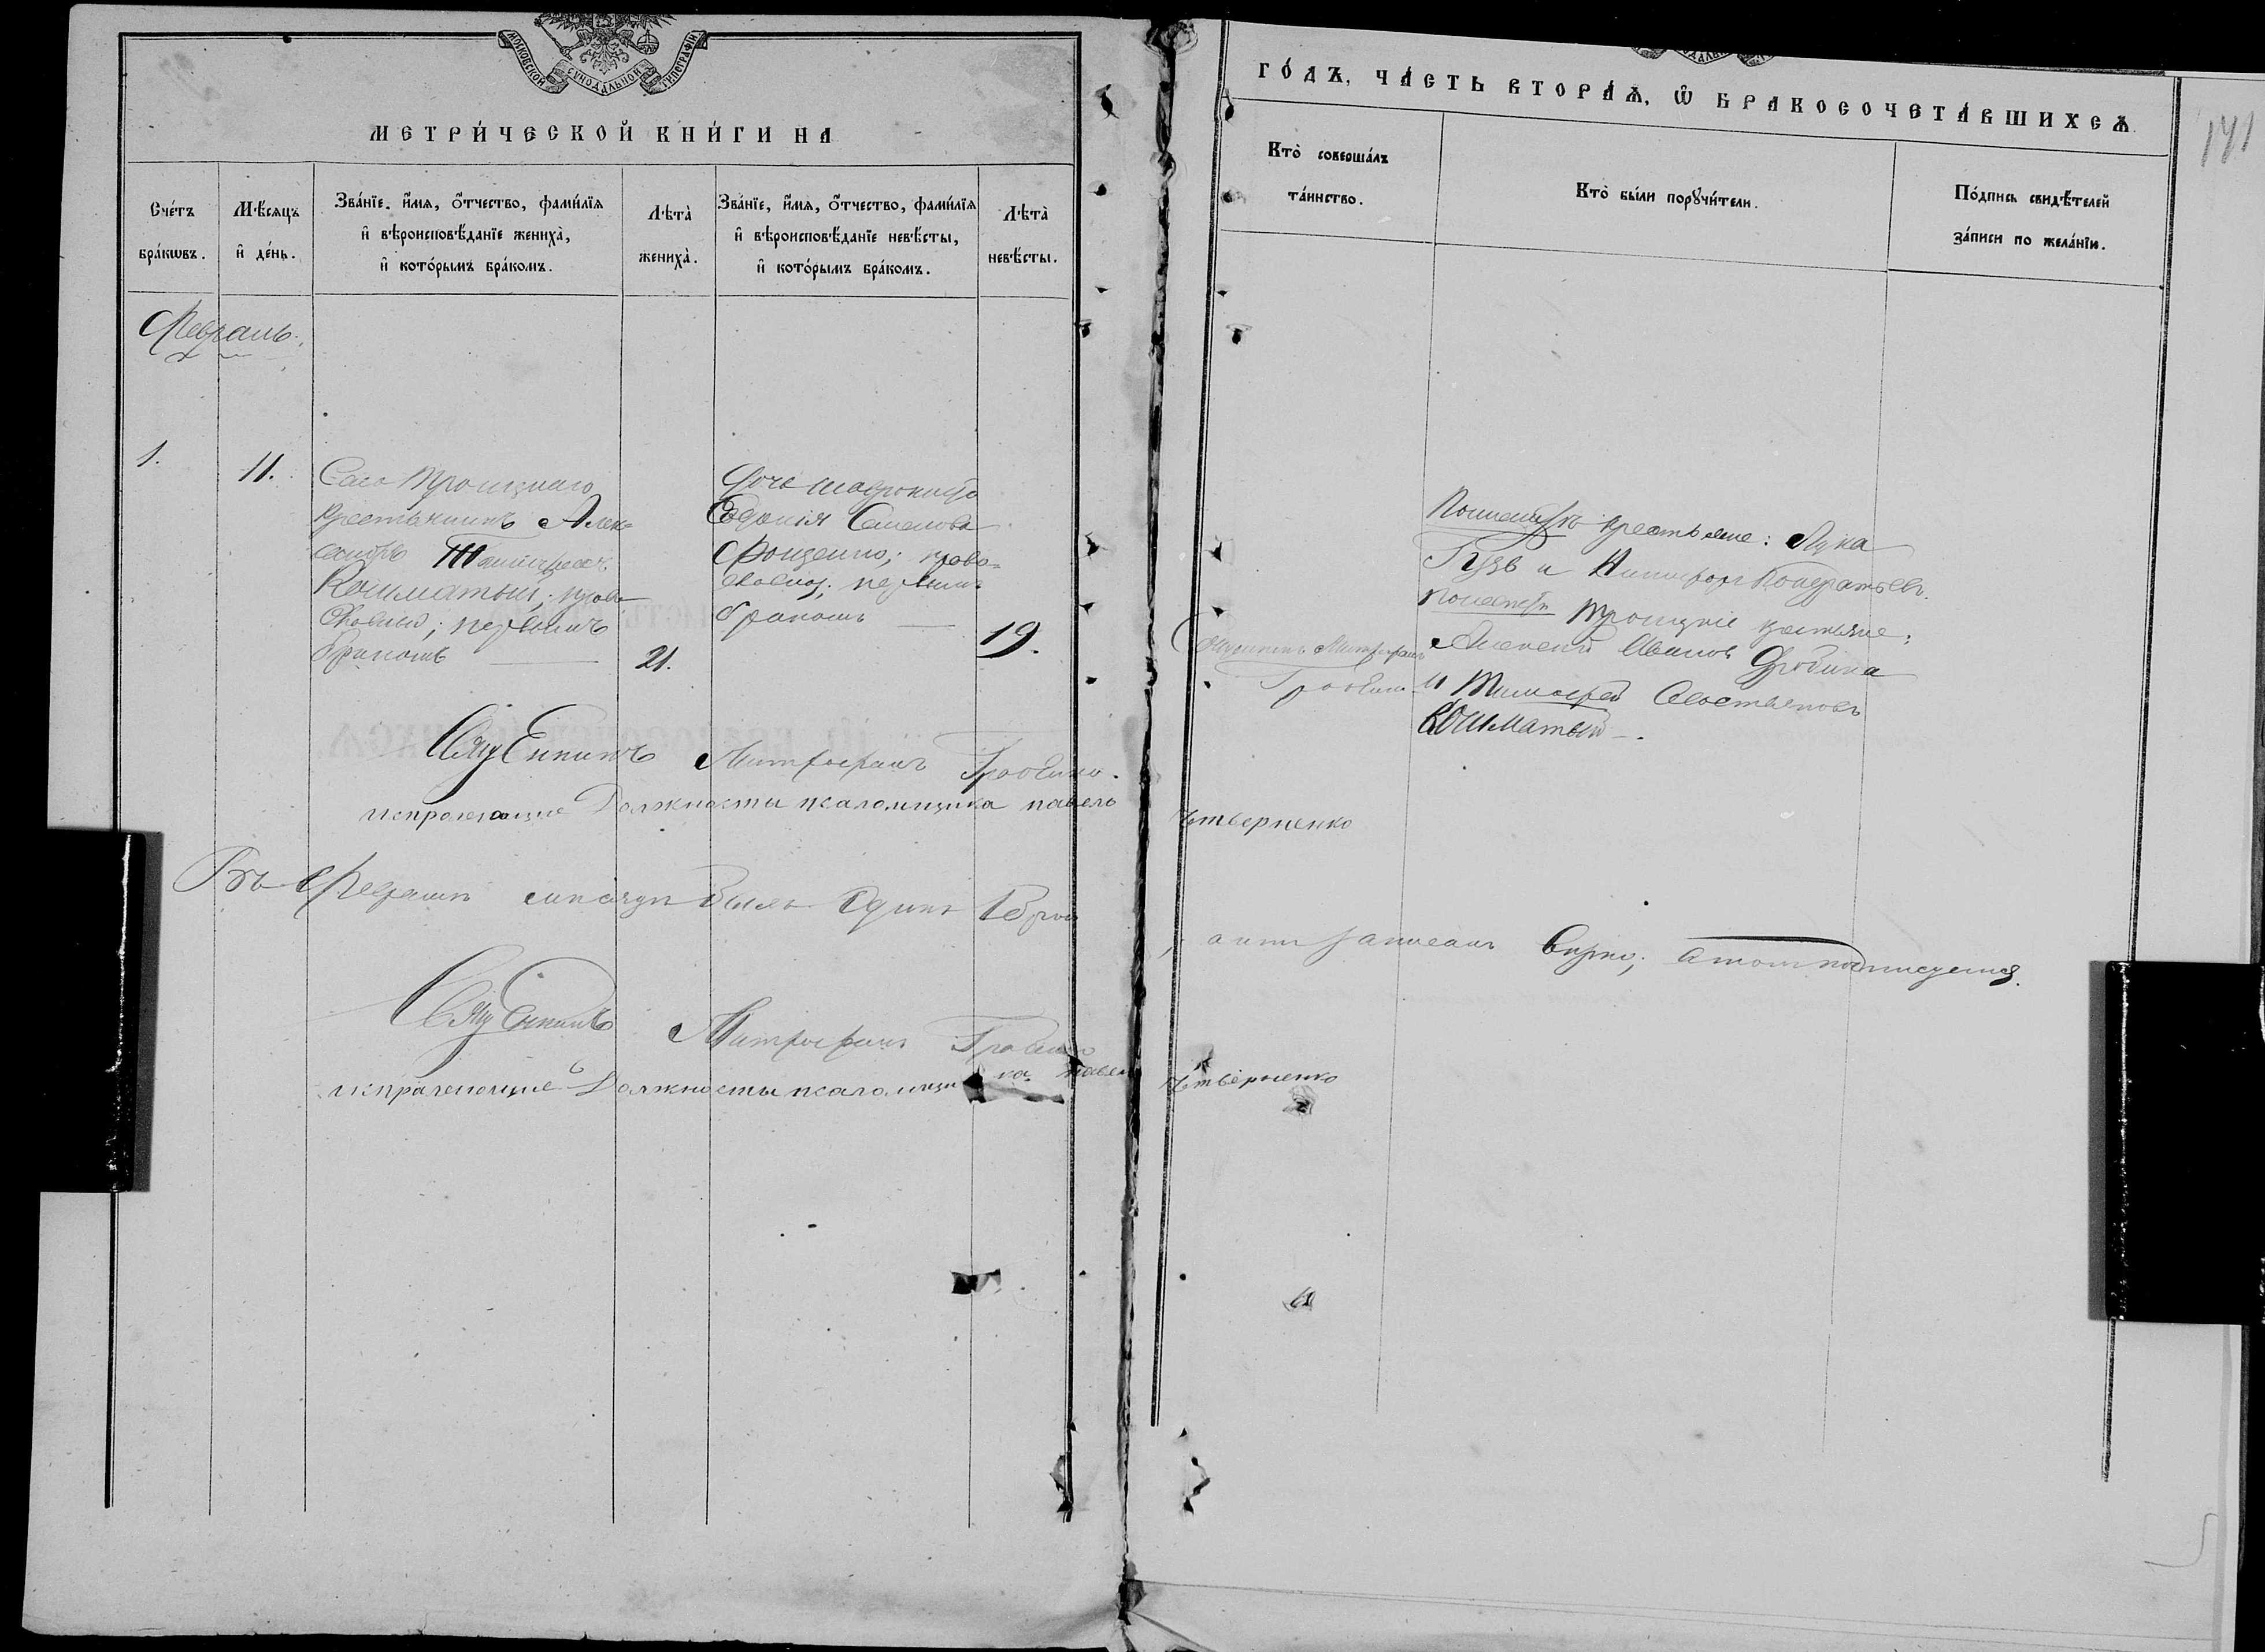 МОСКОВСКОЙ СѴНОДАЛЬНОЙ ТИПОГРАФІИ
МЕТРИ́ЧЕСКОЙ КНИ́ГИ НА
ГО́ДЪ, ЧА́СТЬ ВТОРА́Ѧ, Ѿ БРАКОСОЧЕТА́ВШИХСѦ
171
Сче́тъ
бра́кѡвъ.
Мѣ́сяцъ
и҆ де́нь.
Зва́нїе, и҆́мя, ѻ҆́тчество, фами́лїя
и҆ вѣроисповѣ́данїе жениха̀,
и҆ кото́рымъ бра́комъ.
Лѣта̀
жениха̀.
Зва́нїе, и҆́мя, ѻ҆́тчество, фами́лїя
и҆ вѣроисповѣ́данїе невѣ́сты,
и҆ кото́рымъ бра́комъ.
Лѣта̀
невѣ́сты.
Кто̀ соверша́лъ
та́инство.
Кто̀ бы́ли порꙋчи́тели.
По́дпись свидѣ́телей
за́писи по жела́нїи.
Февраль.
1.
11.
Села Троицкаго
крестьянинъ Алек=
сандръ Тимофеевъ
Кошматый; право
славный; первымъ
бракомъ
21.
Дочь
Евдокія Семенова
православнаго; первымъ
бракомъ
19.
Священникъ Митрофанъ
По женихѣ крестьяне: Лука
Гузь и Никифоръ Кондратьевъ.
По невѣстѣ Троицкіе крестьяне:
Алексей Ивановъ
и Тимофей Севостьяновъ
Кошматый.
Священникъ Митрофанъ
исправляющие Должности псаломщика павелъ
Четверненко
Въ Февралѣ месяцѣ былъ Одинъ Бракъ
, записанъ Вѣрно; в томъ подписуемся.
Священникъ Митрофанъ
исправляющие Должности псаломщика павелъ
Четверненко